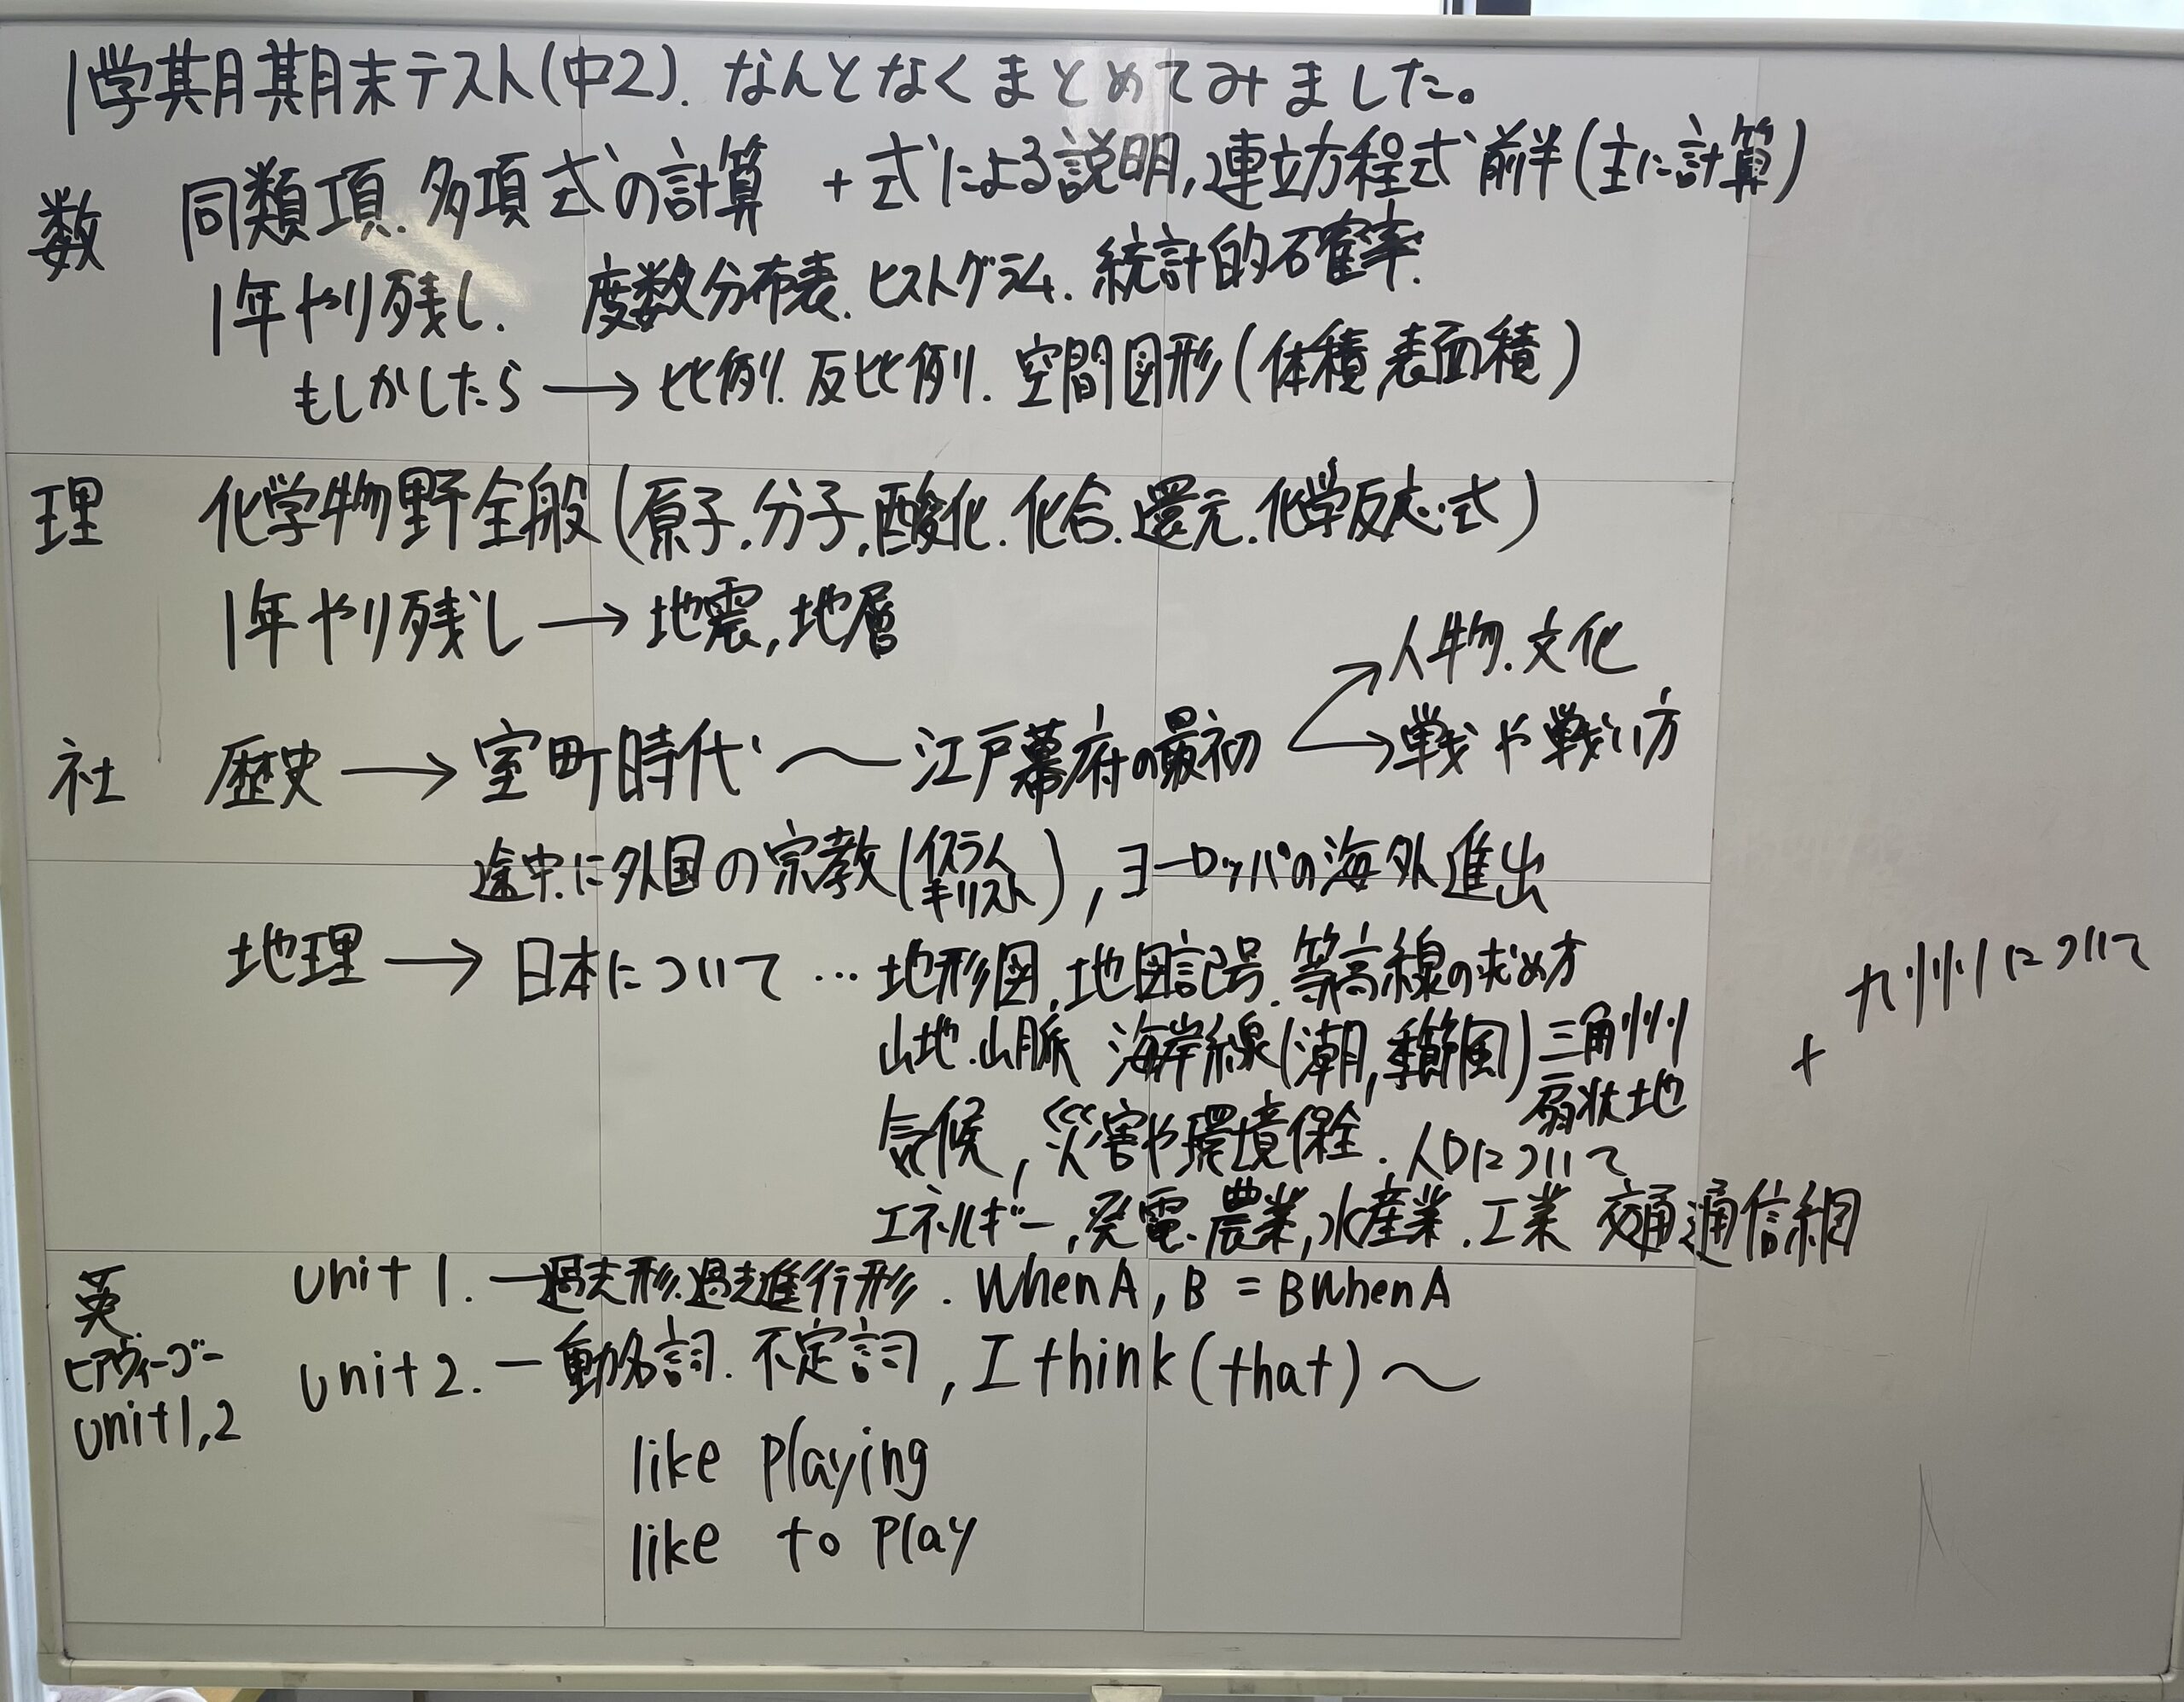 1学期期末テスト(中2).なんとなくまとめてみました。
数 同類項.多項式の計算 +式による説明,連立方程式前半(主に計算)
1年やり残し. 度数分布表.ヒストグラム.統計的確率.
もしかしたら→比例.反比例.空間図形(体積,表面積)
理 化学物野全般(原子.分子.酸化.化合.還元.化学反応式)
1年やり残し→地震,地層
人物.文化
社 歴史→室町時代〜江戸幕府の最初 →戦や戦い方
途中に外国の宗教(イスラム キリスト),ヨーロッパの海外進出
地理→日本について…地形図.地図記号.等高線の求め方
+九州について
山地.山脈 海岸線(潮,季節風)三角州
扇状地
気候,災害や環境保全.人口について
エネルギー,発電.農業,水産業.工業 交通通信網
英 unit 1.ー過去形.過去進行形.When A, B = B when A
ヒアウィーゴー unit 2.ー動名詞.不定詞,I think(that)〜
unit1,2
like playing
like to play